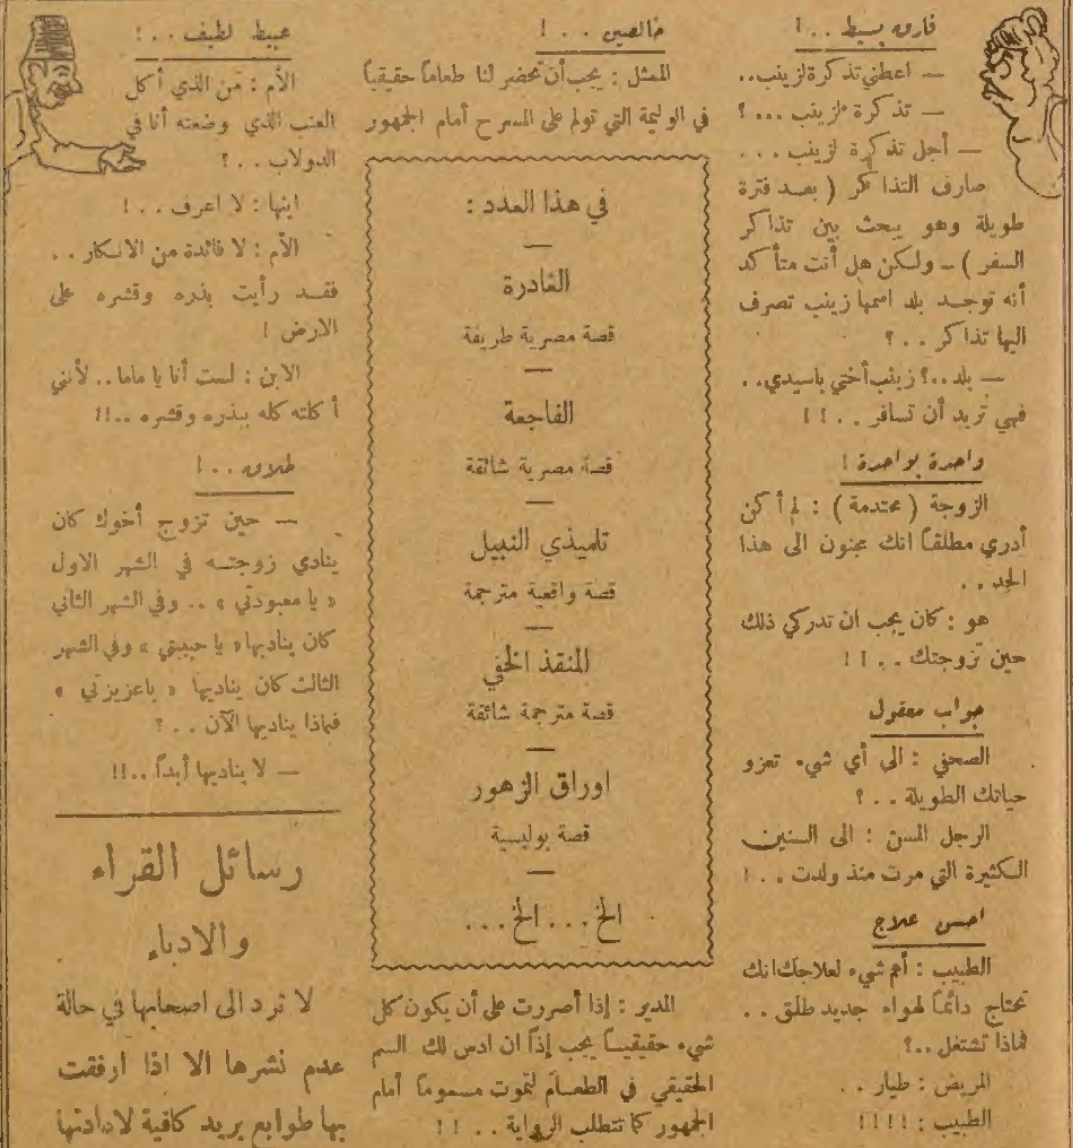 فارق بسيط . . !
— اعطني تذكرة لزينب . .
— تذكرة لزينب . . . ؟
— أجل تذكرة لزينب . . .
صارف التذاكر ( بعد فترة
طويلة وهو يبحث بين تذاكر
السفر ) — ولكن هل أنت متأكد
أنه توجد بلد اسمها زينب تصرف
اليها تذاكر . . ؟
— بلد . . ؟ زينب أختي ياسيدي . .
فهي تريد أن تسافر . . ! !
واحدة بواحدة !
الزوجة ( محتدمة ) : لم أكن
أدري مطلقاً انك مجنون الى هذا
الحد . .
هو : كان يجب ان تدركي ذلك
حين تزوجتك . . ! !
جواب معقول
الصحفي : الى أي شيء تعزو
حياتك الطويلة . . ؟
الرجل المسن : الى السنين
الكثيرة التي مرت منذ ولدت . . !
احسن علاج
الطبيب : أهم شيء لعلاجك انك
تحتاج دائماً لهواء جديد طلق . .
فماذا تشتغل . . ؟
المريض : طيار . .
الطبيب : ! ! ! !
خالصين . . !
الممثل : يجب أن تحضر لنا طعاماً حقيقياً
في الوليمة التي تولم على المسرح أمام الجمهور
في هذا العدد :
الغادرة
قصة مصرية طريفة
الفاجعة
قصة مصرية شائقة
تلميذي النبيل
قصة واقعية مترجمة
المنقذ الخفي
قصة مترجمة شائقة
اوراق الزهور
قصة بوليسية
الخ . . . الخ . . .
المدير : إذا أصررت على أن يكون كل
شيء حقيقياً يجب إذاً ان ادس لك السم
الحقيقي في الطعام لتموت مسموماً أمام
الجمهور كما تتطلب الرواية . . ! !
عبيط لطيف . . !
الأم : من الذي أكل
العنب الذي وضعته أنا في
الدولاب . . ؟
ابنها : لا اعرف . . !
الأم : لا فائدة من الانكار . .
فقد رأيت بذره وقشره على
الارض !
الابن : لست أنا يا ماما . . لأنني
أكلته كله ببذره وقشره . . !!
طلاق . . !
— حين تزوج أخوك كان
ينادي زوجته في الشهر الاول
« يا معبودتي » . . وفي الشهر الثاني
كان يناديها « يا حبيبتي » وفي الشهر
الثالث كان يناديها « ياعزيزتي »
فماذا يناديها الآن . . ؟
— لا يناديها أبداً . . !!
رسائل القراء
والادباء
لا ترد الى اصحابها في حالة
عدم نشرها الا اذا ارفقت
بها طوابع بريد كافية لاعادتها